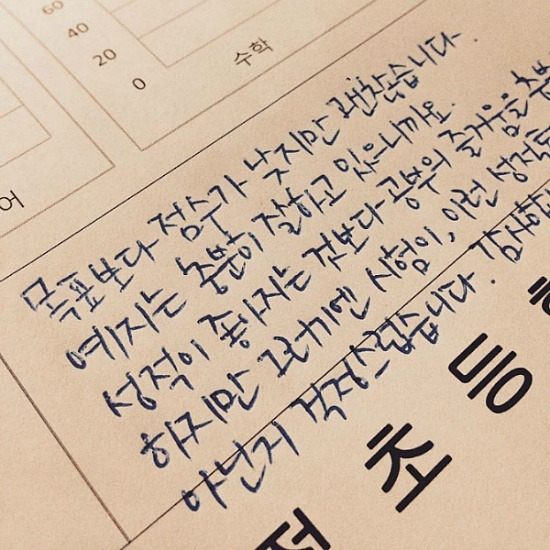 60
40
20
0
수학
어
목표보다 점수가 낮지만 괜찮습니다.
예지는 충분히 잘하고 있으니까요.
성적이 좋아지는 것보다 공부의 즐거움을
하지만 그러기엔 시험이, 이런 성적표
아닌지 걱정스럽습니다. 감사하
초등